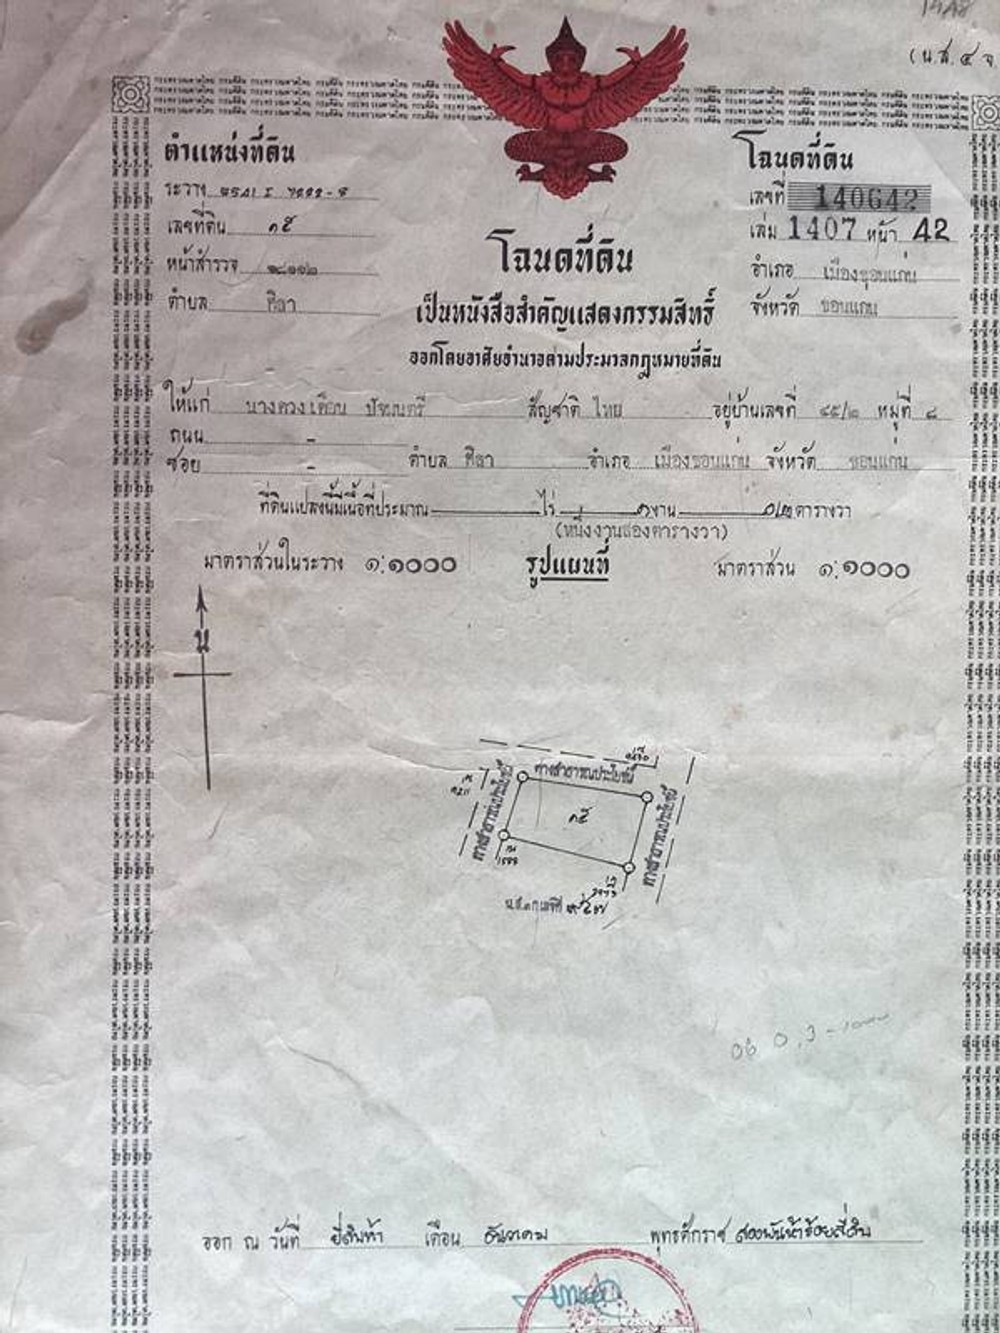 (น.ส. ๔ จ
ตำแหน่งที่ดิน
โฉนดที่ดิน
ระวาง
เลขที่ 140642
เลขที่ดิน ๑๕
เล่ม 1407 หน้า 42
หน้าสำรวจ
โฉนดที่ดิน
อำเภอ เมืองขอนแก่น
ตำบล ศิลา
เป็นหนังสือสำคัญแสดงกรรมสิทธิ์
จังหวัด ขอนแก่น
ออกโดยอาศัยอำนาจตามประมวลกฎหมายที่ดิน
ให้แก่ นางดวงเดือน ปัจมนตรี สัญชาติ ไทย อยู่บ้านเลขที่ ๔๕/๒ หมู่ที่ ๘
ถนน -
ซอย - ตำบล ศิลา อำเภอ เมืองขอนแก่น จังหวัด ขอนแก่น
ที่ดินแปลงนี้มีเนื้อที่ประมาณ ไร่ ๑ งาน ๐๒ ตารางวา
(หนึ่งงานสองตารางวา)
มาตราส่วนในระวาง ๑:๑๐๐๐ รูปแผนที่ มาตราส่วน ๑:๑๐๐๐
น
ทางสาธารณประโยชน์
ทางสาธารณประโยชน์
ทางสาธารณประโยชน์
๑๕
น.ส.๓ ก เลขที่
ออก ณ วันที่ ยี่สิบห้า เดือน ธันวาคม พุทธศักราช สองพันห้าร้อยสี่สิบ